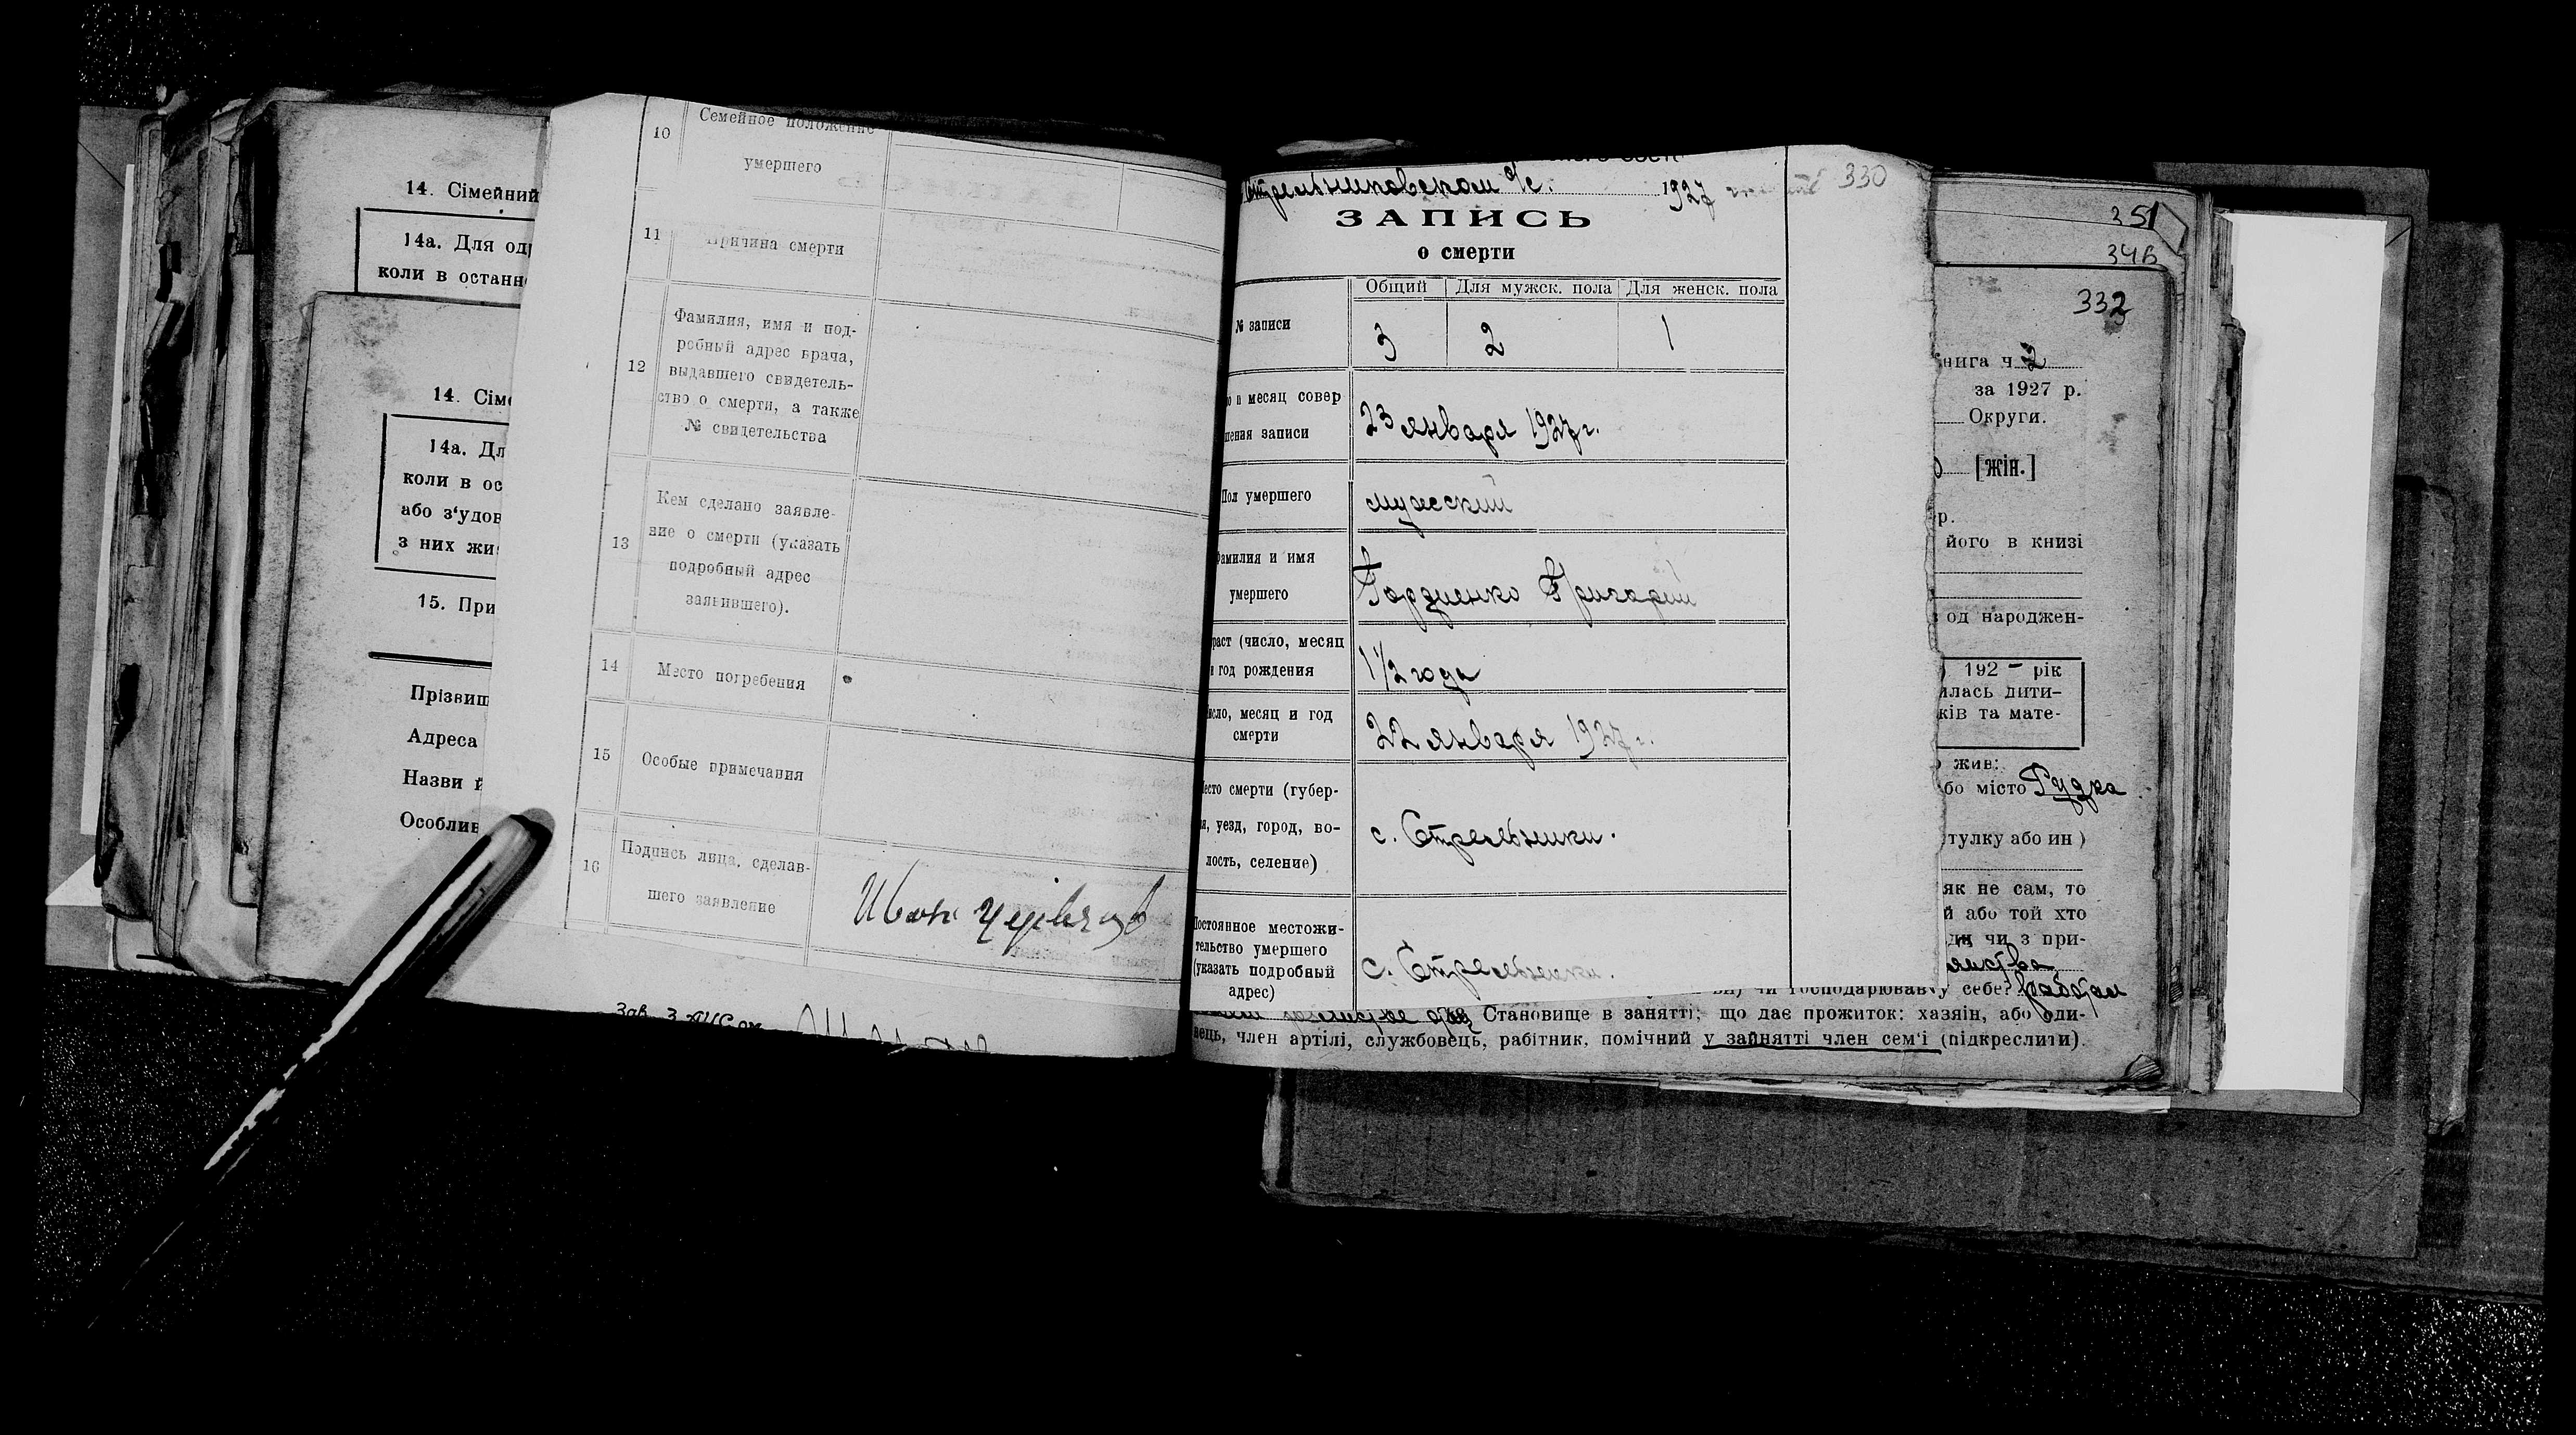 14. Сімейний
14а. Для од
коли в останн
14. Сім
14а. Дл
коли в ос
або з‘удов
з них жи
15. При
Прізвищ
Адреса
Назви й
Особлив
10 Семейное положение
умершего
11 Причина смерти
12 Фамилия, имя и под-
робный адрес врача,
выдавшего свидетель-
ство о смерти, а также
№ свидетельства
13 Кем сделано заявле-
ние о смерти (указать
подробный адрес
заявившего).
14 Место погребения
15 Особые примечания
16 Подпись лица, сделав-
шего заявление
Иван
Зав. ЗАГС
Стрельниковском с/с. 1927 330
ЗАПИСЬ
о смерти
Общий Для мужск. пола Для женск. пола
№ записи 3 2 1
о и месяц совер
шения записи 23 января 1927 г.
Пол умершего мужеский
Фамилия и имя
умершего Гордиенко Григорий
раст (число, месяц
и год рождения 1 1/2 года
исло, месяц и год
смерти 22 января 1927 г.
есто смерти (губер-
я, уезд, город, во-
лость, селение) с. Стрельники.
Постоянное местожи-
тельство умершего
(указать подробный
адрес) с. Стрельники.
351
348
332
нига ч. 2
за 1927 р.
Округи.
[жін.]
р.
його в книзі
од народжен-
192 – рік
илась дити-
ків та мате-
жив:
бо місто Рудка
тулку або ин)
як не сам, то
й або той хто
ди чи з при-
чи господарював у себе?
Становище в занятті; що дає прожиток: хазяїн, або оди-
вець, член артілі, службовець, рабітник, помічний у зайнятті член сем‘ї (підкреслити).